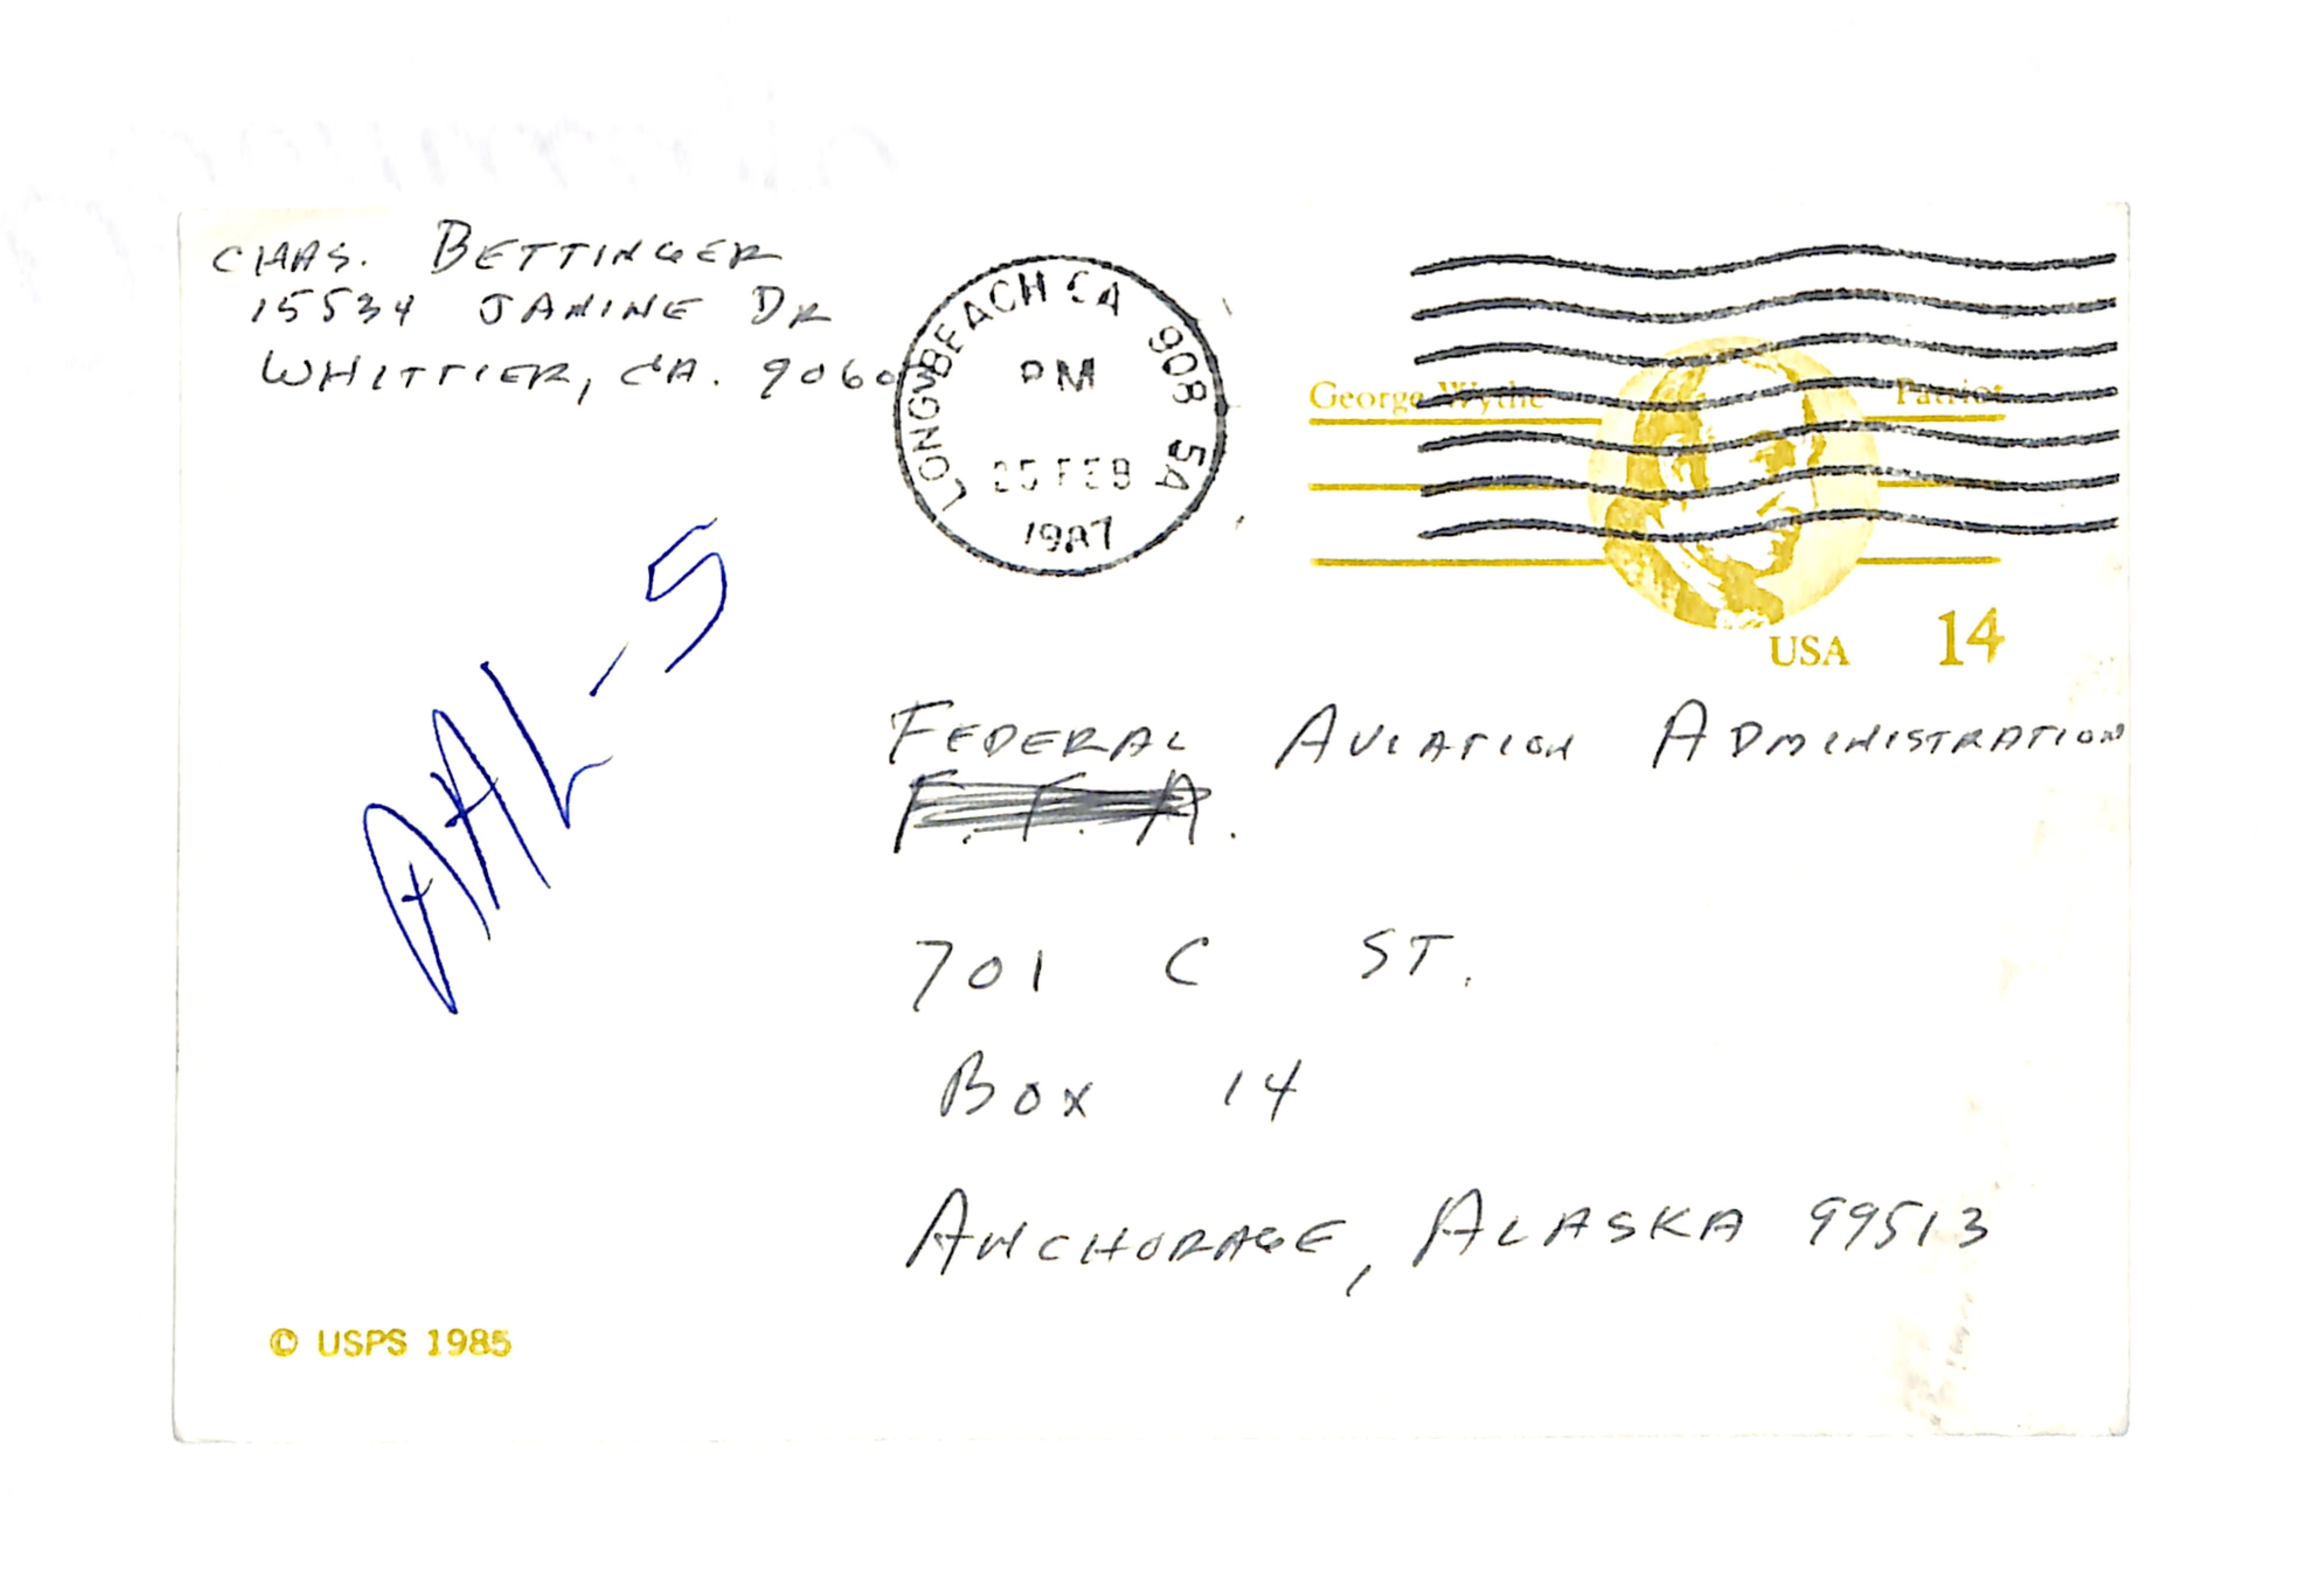 CHAS. BETTINGER
15534 JANINE DR
WHITTIER, CA.
LONG BEACH CA 908 5A
PM
25 FEB
1987
George Wythe Patriot
USA 14
AAL-5
FEDERAL AVIATION ADMINISTRATION
701 C ST.
BOX 14
ANCHORAGE, ALASKA 99513
© USPS 1985